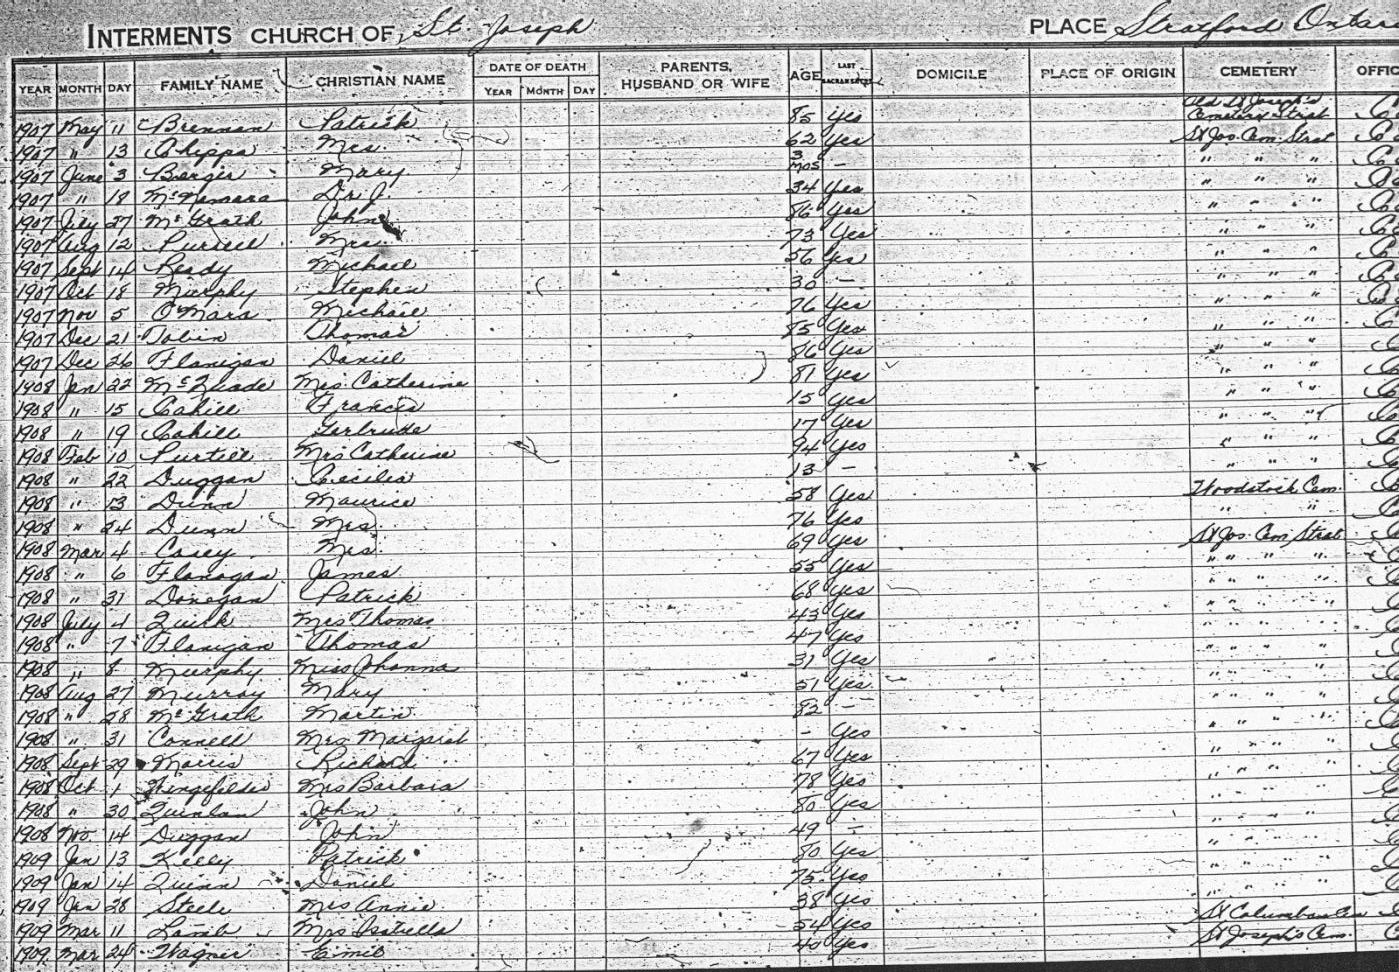 INTERMENTS CHURCH OF St. Joseph PLACE Stratford
YEAR MONTH DAY FAMILY NAME CHRISTIAN NAME DATE OF DEATH YEAR MONTH DAY PARENTS, HUSBAND OR WIFE AGE LAST SACRAMENTS DOMICILE PLACE OF ORIGIN CEMETERY
1907 May 11 Brennan Patrick 85 Yes Old St Joseph's Cemetery Strat
1907 " 13 Mrs. 62 Yes St Jos. Cem. Strat
1907 June 3 Berger Mary 3 mos - " " "
1907 " 18 McNamara Dr. J. 34 Yes " " "
1907 July 27 McGrath John 86 Yes " " "
1907 Aug 12 Purtell Mrs. 73 Yes " " "
1907 Sept 14 Ready Michael 56 Yes " " "
1907 Oct 18 Murphy Stephen 30 - " " "
1907 Nov 5 O'Mara Michael 76 Yes " " "
1907 Dec 21 Tobin Thomas 85 Yes " " "
1907 Dec 26 Flanigan Daniel 86 Yes " " "
1908 Jan 22 McQuade Mrs Catherine 81 Yes " " "
1908 " 15 Cahill Francis 15 Yes " " "
1908 " 19 Cahill Gertrude 17 Yes " " "
1908 Feb 10 Purtill Mrs Catherine 94 Yes " " "
1908 " 22 Duggan Cecilia 13 -
1908 " 13 Dunn Maurice 58 Yes Woodstock Cem.
1908 " 24 Dunn Mrs. 76 Yes " "
1908 Mar 4 Casey Mrs. 69 Yes St Jos. Cem. Strat
1908 " 6 Flanagan James 55 Yes " " "
1908 " 31 Donegan Patrick 68 Yes " " "
1908 July 4 Quirk Mrs Thomas 43 Yes " " "
1908 " 7 Flanigan Thomas 47 Yes " " "
1908 " 8 Murphy Miss Johanna 31 Yes " " "
1908 Aug 27 Murray Mary 51 Yes " " "
1908 " 28 McGrath Martin 82 - " " "
1908 " 31 Connell Mrs Margaret - Yes " " "
1908 Sept 29 Morris Richard 67 Yes " " "
1908 Oct 1 Mrs Barbara 78 Yes " " "
1908 " 30 Quinlan John 80 Yes " " "
1908 No. 14 Duggan John 49 - " " "
1909 Jan 13 Kelly Patrick 80 Yes " " "
1909 Jan 14 Quinn Daniel 75 Yes " " "
1909 Jan 28 Steele Mrs Annie 38 Yes " " "
1909 Mar 11 Lamb Mrs Isabella 54 Yes St Columban Cem
1909 Mar 24 Wagner Emil 40 Yes St Joseph's Cem.